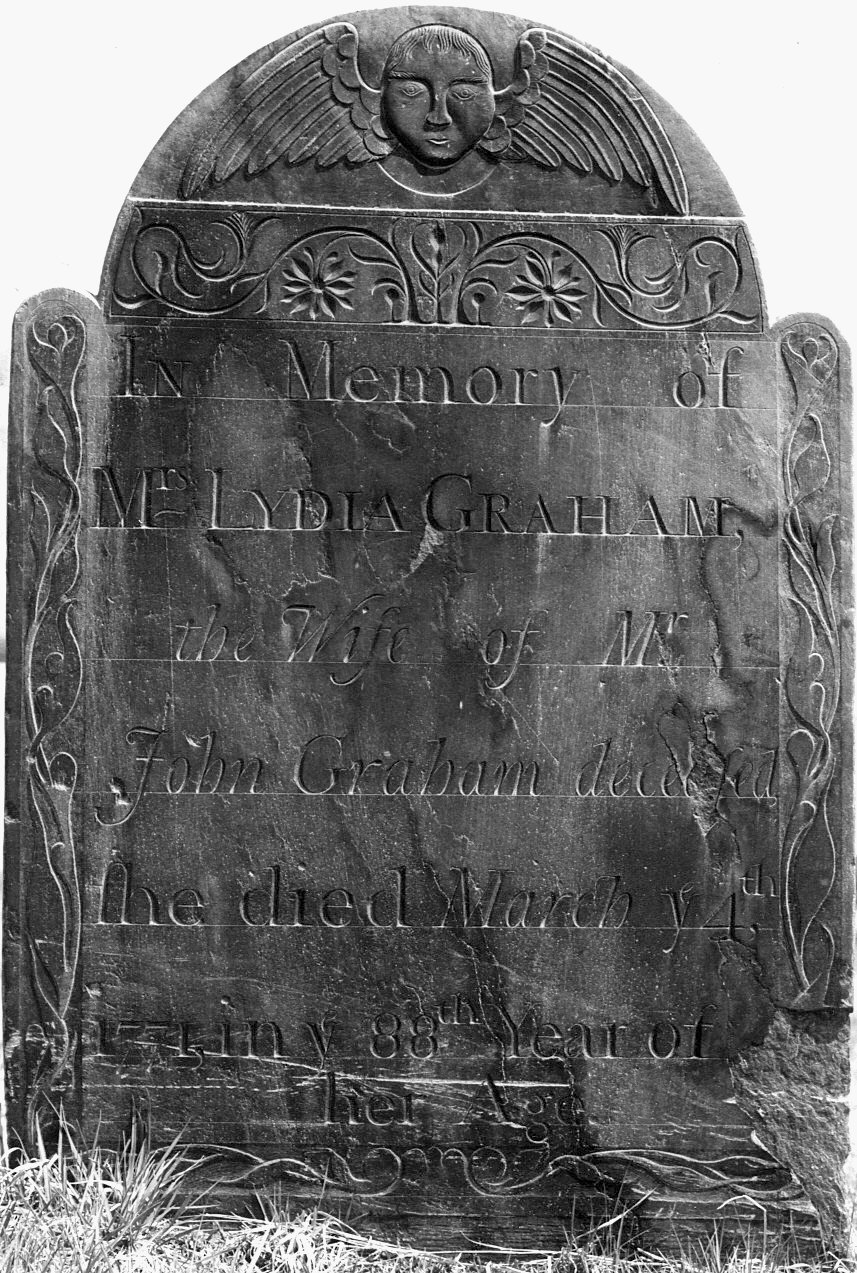 In Memory of
Mrs LYDIA GRAHAM,
the Wife of Mr.
John Graham deceaſed
ſhe died March y 4th,
1771, in y 88th Year of
her Age